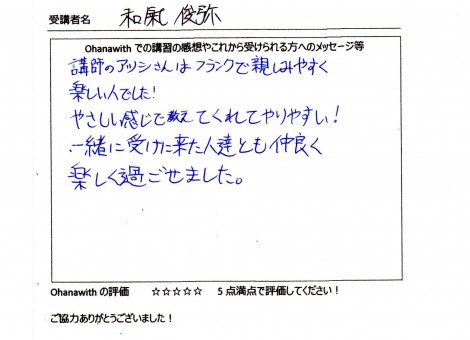 受講者名 和氣 俊弥
Ohanawith での講習の感想やこれから受けられる方へのメッセージ等
講師のアツシさんはフランクで親しみやすく
楽しい人でした!
やさしい感じで教えてくれてやりやすい!
一緒に受けに来た人達とも仲良く
楽しく過ごせました。
Ohanawith の評価 ☆☆☆☆☆ 5 点満点で評価してください!
ご協力ありがとうございました!